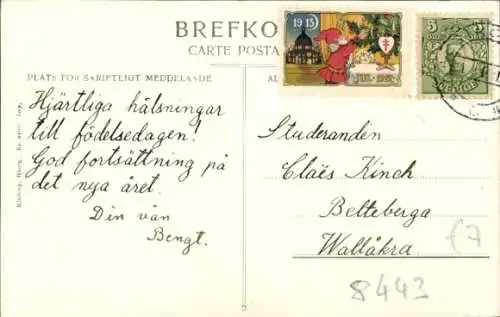 BREFKO
CARTE POSTA
1913
JUL
5
SVERIGE
PLATS FÖR SKRIFTLIGT MEDDELANDE
Hjärtliga hälsningar
till födelsedagen!
God fortsättning på
det nya året.
Din vän
Bengt.
Studeranden
Claës Kinch
Belteberga
Wallåkra.
£7
8443